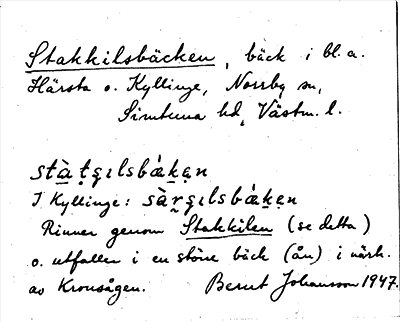 Stakkilsbäcken, bäck i bl. a.
Härsta o. Kyllinge, Norrby sn,
Simtuna hd, Västm. l.
stàṭşılsbǽkęn
I Kyllinge: sàrşılsbǽkęn
Rinner genom Stakkilen (se detta)
o. utfaller i en större bäck (ån) i närh.
av Kronsågen. Bernt Johansson 1947.